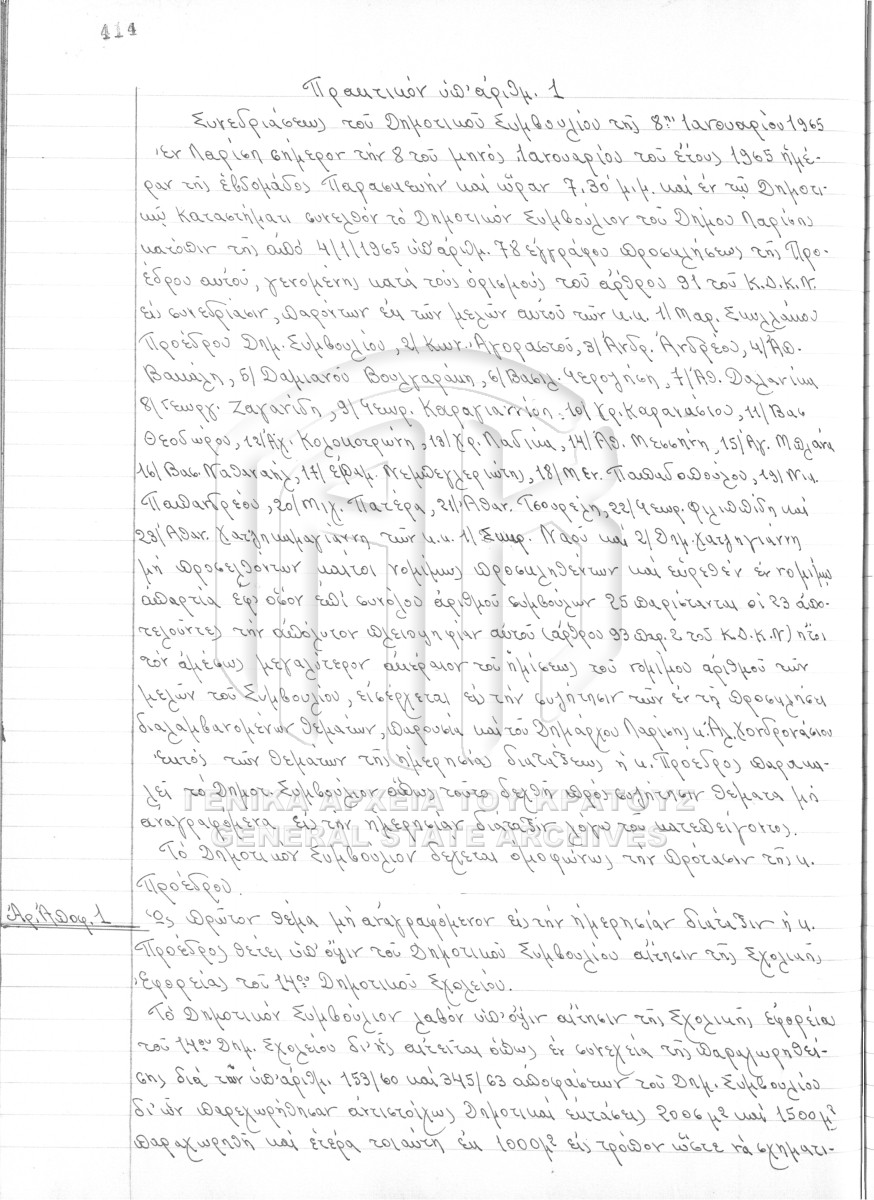 414
Πρακτικόν ὑπ' ἀριθμ. 1
Συνεδριάσεως τοῦ Δημοτικοῦ Συμβουλίου τῆς 8ης Ἰανουαρίου 1965
Ἐν Λαρίσῃ σήμερον τήν 8 τοῦ μηνός Ἰανουαρίου τοῦ ἔτους 1965 ἡμέ-
ραν τῆς ἑβδομάδος Παρασκευήν καί ὥραν 7,30 μ.μ. καί ἐν τῷ Δημοτι-
κῷ Καταστήματι συνελθόν τό Δημοτικόν Συμβούλιον τοῦ Δήμου Λαρίσης
κατόπιν τῆς ἀπό 4/1/1965 ὑπ' ἀριθμ. 78 ἐγγράφου προσκλήσεως τῆς Προ-
έδρου αὐτοῦ, γενομένης κατά τούς ὁρισμούς τοῦ ἄρθρου 91 τοῦ Κ.Δ.Κ.Ν.
εἰς συνεδρίασιν, παρόντων ἐκ τῶν μελῶν αὐτοῦ τῶν κ.κ. 1/ Μαρ. Σκυλλάκου
Προέδρου Δημ. Συμβουλίου, 2/ Κων. Ἀγοραστοῦ, 3/ Ἀνδρ. Ἀνδρέου, 4/ Ἀπ.
Βακάλη, 5/ Δαμιανοῦ Βουλγαράκη, 6/ Βασιλ. Ἱερογιάννη, 7/ Ἀθ. Δαλανίκα
8/ Γεωργ. Ζαγανίδη, 9/ Γεωρ. Καραγιαννίδη, 10/ Χρ. Καρανάσιου, 11/ Βασ
Θεοδώρου, 12/ Ἀχ. Κολοκοτρώνη, 13/ Χρ. Λαδίκα, 14/ Ἀθ. Μεσσήνη, 15/ Ἀγ. Μπλάνα
16/ Βασ Ναθαναήλ, 17/ Εὐθυμ. Νεμπεγλεριώτης, 18/ Μεν. Παπαδοπούλου, 19/ Νικ
Παπανδρέου, 20/ Μιχ. Πατέρα, 21/ Ἀθαν. Τσουρέλη, 22/ Γεωρ. Φιλιππίδη καί
23/ Ἀθαν. Χατζηκαμαγιάννη τῶν κ.κ. 1/ Σωκρ. Ναοῦ καί 2/ Δημ. Χατζηγιάννη
μή προσελθόντων καίτοι νομίμως προσκληθέντων καί εὑρεθέν ἐν νομίμῳ
ἀπαρτίᾳ ἐφ' ὅσον ἐπί συνόλου ἀριθμοῦ συμβούλων 25 παρίστανται οἱ 23 ἀπο-
τελοῦντες τήν ἀπόλυτον πλειοψηφίαν αὐτοῦ (ἄρθρου 93 παρ. 2 τοῦ Κ.Δ.Κ.Ν) ἤτοι
τόν ἀμέσως μεγαλύτερον ἀκέραιον τοῦ ἡμίσεως τοῦ νομίμου ἀριθμοῦ τῶν
μελῶν τοῦ Συμβουλίου, εἰσέρχεται εἰς τήν συζήτησιν τῶν ἐν τῇ προσκλήσει
διαλαμβανομένων θεμάτων, παρουσίᾳ καί τοῦ Δημάρχου Λαρίσης κ. Ἀλ. Χονδρονάσιου
Ἐκτός τῶν θεμάτων τῆς ἡμερησίας διατάξεως ἡ κ. Πρόεδρος παρακα-
λεῖ τό Δημοτ. Συμβούλιον ὅπως τοῦτο δεχθῇ πρός συζήτησιν θέματα μή
ἀναγραφόμενα εἰς τήν ἡμερησίαν διάταξιν λόγῳ τοῦ κατεπείγοντος.
ΓΕΝΙΚΑ ΑΡΧΕΙΑ ΤΟΥ ΚΡΑΤΟΥΣ
GENERAL STATE ARCHIVES
Τό Δημοτικόν Συμβούλιον δέχεται ὁμοφώνως τήν πρότασιν τῆς κ.
Προέδρου.
Ἀρ. Ἀποφ. 1
Ὡς πρῶτον θέμα μή ἀναγραφόμενον εἰς τήν ἡμερησίαν διάταξιν ἡ κ.
Πρόεδρος θέτει ὑπ' ὄψιν τοῦ Δημοτικοῦ Συμβουλίου αἴτησιν τῆς Σχολικῆς
Ἐφορείας τοῦ 14ου Δημοτικοῦ Σχολείου.
Τό Δημοτικόν Συμβούλιον λαβόν ὑπ' ὄψιν αἴτησιν τῆς Σχολικῆς ἐφορεία
τοῦ 14ου Δημ. Σχολείου δι' ἧς αἰτεῖται ὅπως ἐν συνεχείᾳ τῆς παραχωρηθεί-
σης διά τῶν ὑπ' ἀριθμ. 153/60 καί 345/63 ἀποφάσεων τοῦ Δημ. Συμβουλίου
δι' ὧν παρεχωρήθησαν ἀντιστοίχως Δημοτικαί ἐκτάσεις 2006 μ2 καί 1500 μ2
παραχωρηθῇ καί ἑτέρα τοιαύτη ἐκ 1000 μ2 εἰς τρόπον ὥστε νά σχηματι-